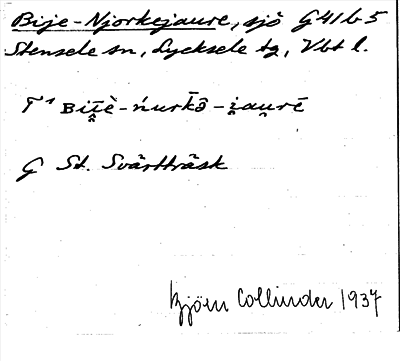 Bije-Njorkejaure, sjö G41b5
Stensele sn, Lycksele tg, Vbt l.
G St. Svärtträsk
Björn Collinder 1937